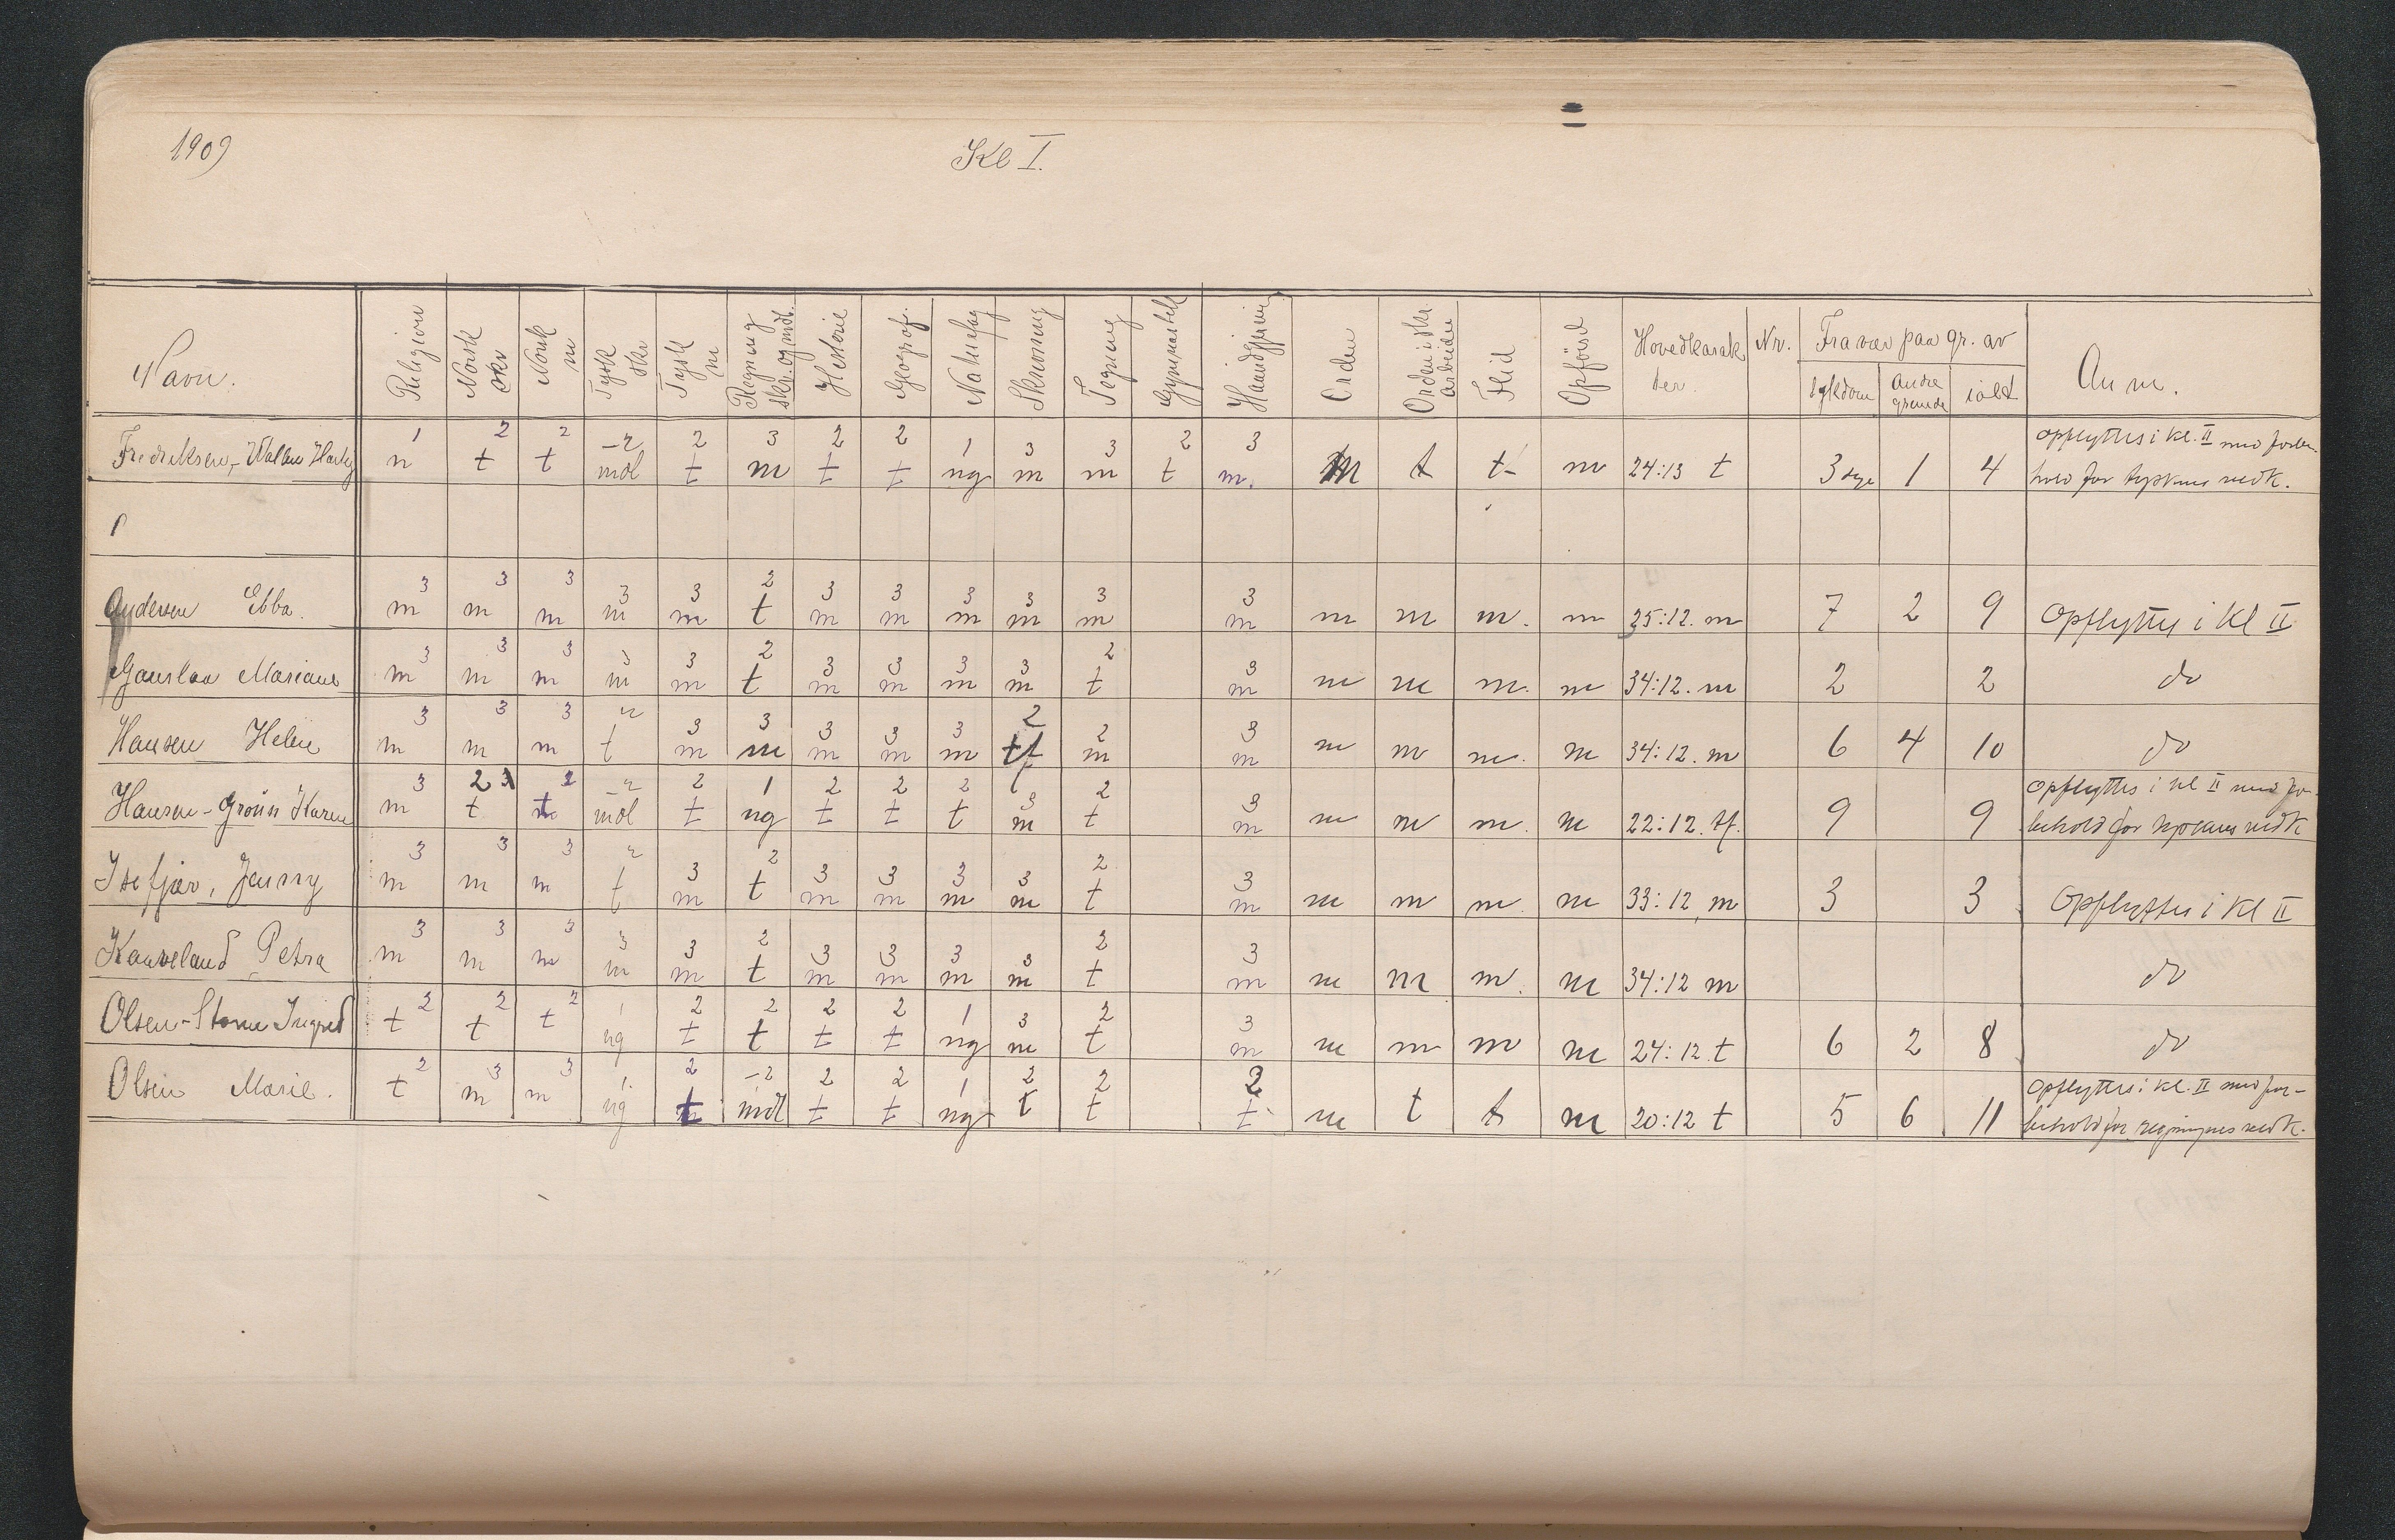 1909
Kl I.
Navn. Religion Norsk skr Norsk m Tysk skr Tysk m Regning skr. og mdl. Historie Geograf. Naturfag Skrivning Tegning Gymnastik Haandgjerning Orden Orden i skr. arbeider Flid Opførsel Hovedkarakter. Nr. Fravær paa gr. av Anm.
sygdom andre grunde ialt
1 2 2 -2 2 3 2 2 1 3 3 2 3 opflyttes i kl. II med forbe-
Fredriksen, n t t mdl t m t t ng m m t m. m t t m 24:13 t 3 1 4 hold for tyskens vedk.
3 3 3 3 3 2 3 3 3 3 3 3
Andersen Ebba. m m m m m t m m m m m m m m m. m 35:12. m 7 2 9 Opflyttes i Kl II
3 3 3 3 3 2 3 3 3 3 2 3
Gauslaa Mariane m m m m m t m m m m t m m m m. m 34:12. m 2 2 do
3 3 3 2 3 3 3 3 3 2 2 3
Hansen Helene m m m t m m m m m tf m m m m m. m 34:12. m 6 4 10 do
3 2 2 -2 2 1 2 2 2 3 2 3 opflyttes i kl II med for-
Hansen-Grøns Karen m t t mdl t ng t t t m t m m m m. m 22:12. tf. 9 9 behold for tyskens vedk
3 3 3 2 3 2 3 3 3 3 2 3
Isefjær, Jenny m m m t m t m m m m t m m m m. m 33:12, m 3 3 Opflyttes i Kl II
3 3 3 3 3 2 3 3 3 3 2 3
Kauveland Petra m m m m m t m m m m t m m m m. m 34:12 m do
2 2 2 1 2 2 2 2 1 3 2 3
Olsen-Storm Ingrid t t t ng t t t t ng m t m m m m m 24:12. t 6 2 8 do
2 3 3 1 2 -2 2 2 1 2 2 2 Opflyttes i kl. II med for-
Olsen Marie. t m m ng t mdl t t ng t t t m t t m 20:12 t 5 6 11 behold for regningens vedk.